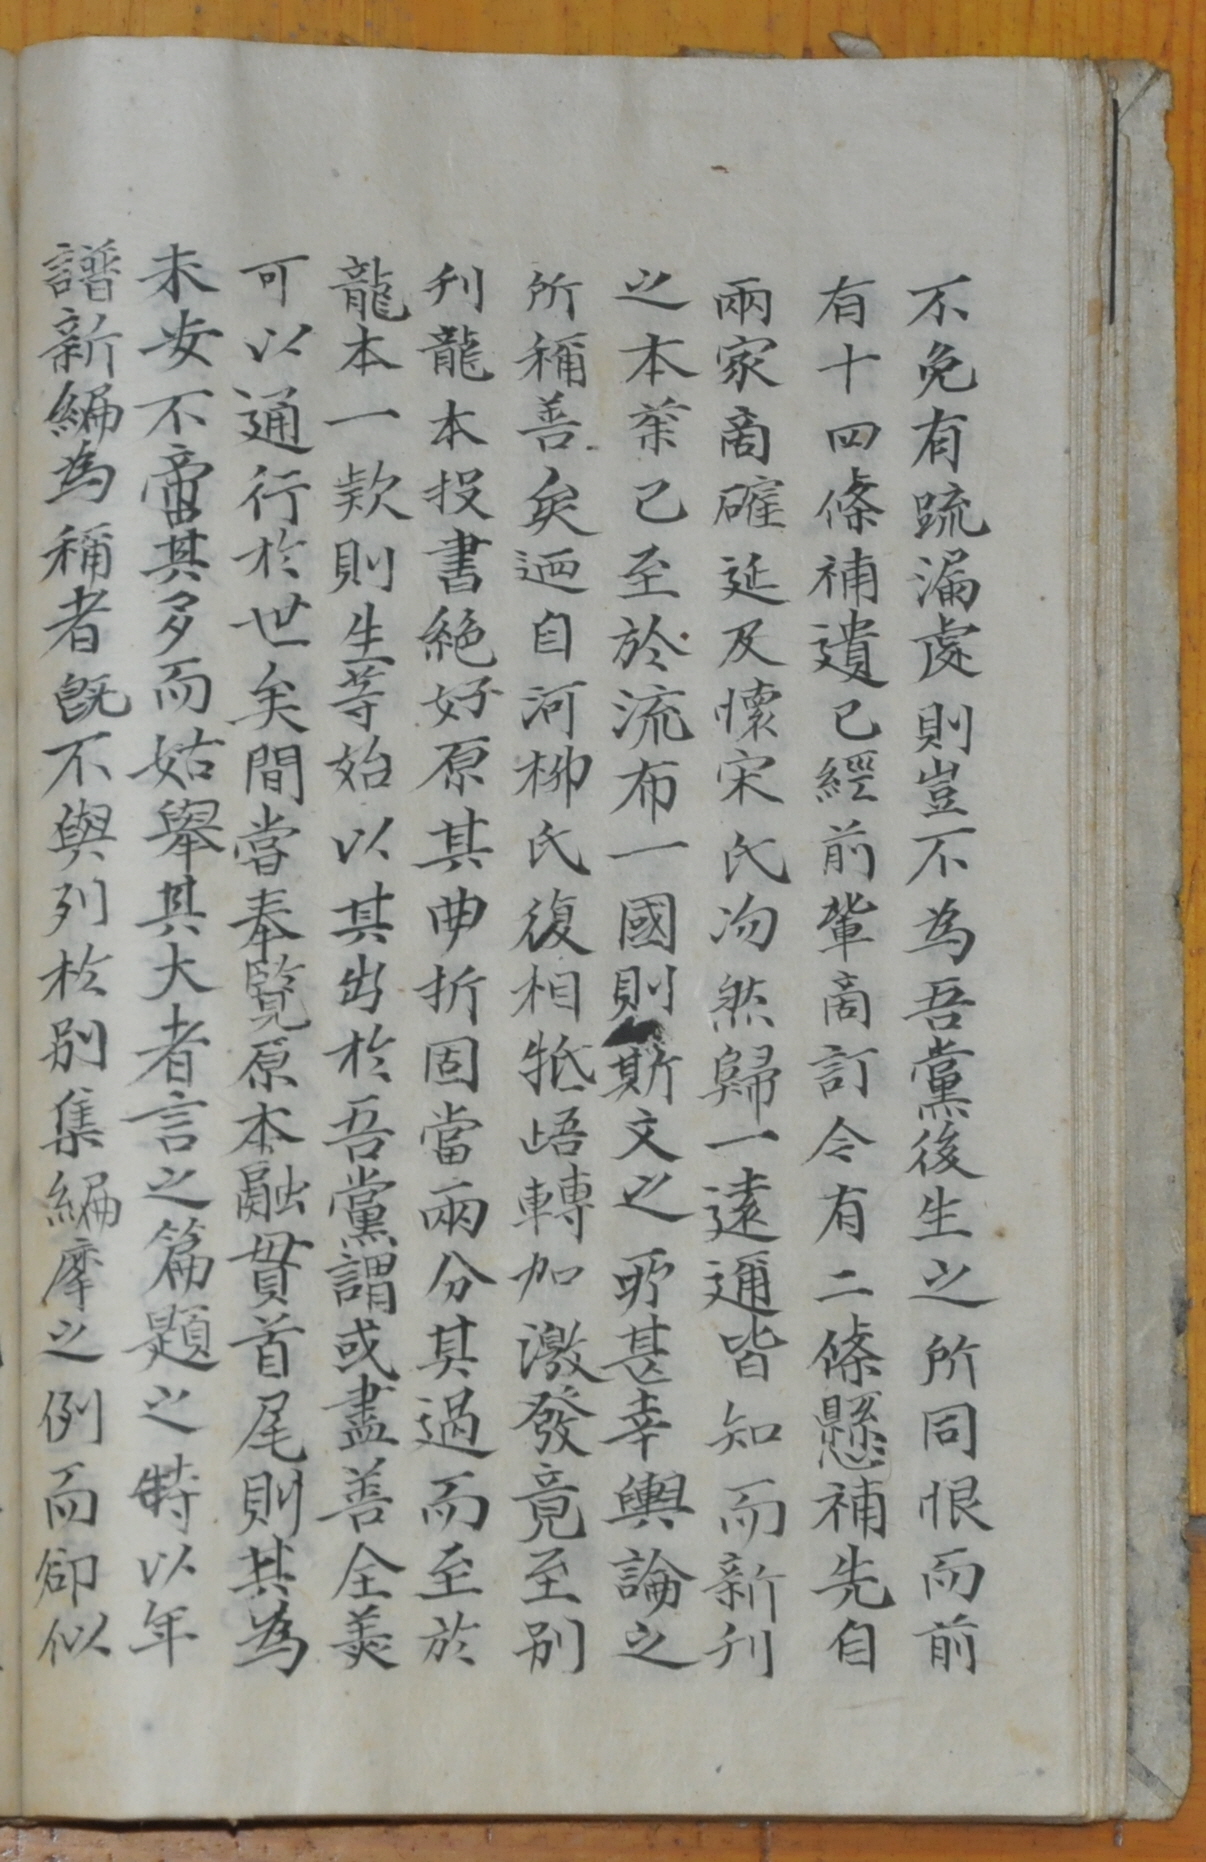 不免有踈漏處則豈不為吾黨後生之所同恨而前
有十四條補遺已經前輩啇訂今有二條懸補先自
兩家啇確延及懷宋氏沕然歸一遠邇皆知而新刊
之本業已至於流布一國則斯文之所甚幸輿論之
所稱善矣迺自河柳氏復相牴峿轉加激發竟至別
刊龍本投書絶好原其曲折固當兩分其過而至於
龍本一款則生等始以其出於吾黨謂或盡善全美
可以通行於世矣間嘗奉覽原本融貫首尾則其為
未安不啻其多而姑舉其大者言之篇題之特以年
譜新編為稱者旣不與列於別集編摩之例而卻似